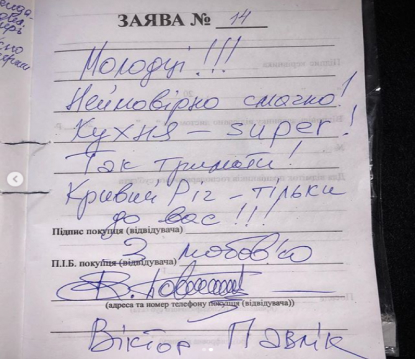 ЗАЯВА № 14
Молодці!!!
Неймовірно смачно!
Кухня – super!
Так тримати!
Кривий Ріг – тільки
до вас!!!
Підпис покупця (відвідувача)
З любов'ю
П.І.Б. покупця (відвідувача)
(адреса та номер телефону покупця (відвідувача))
Віктор Павлік